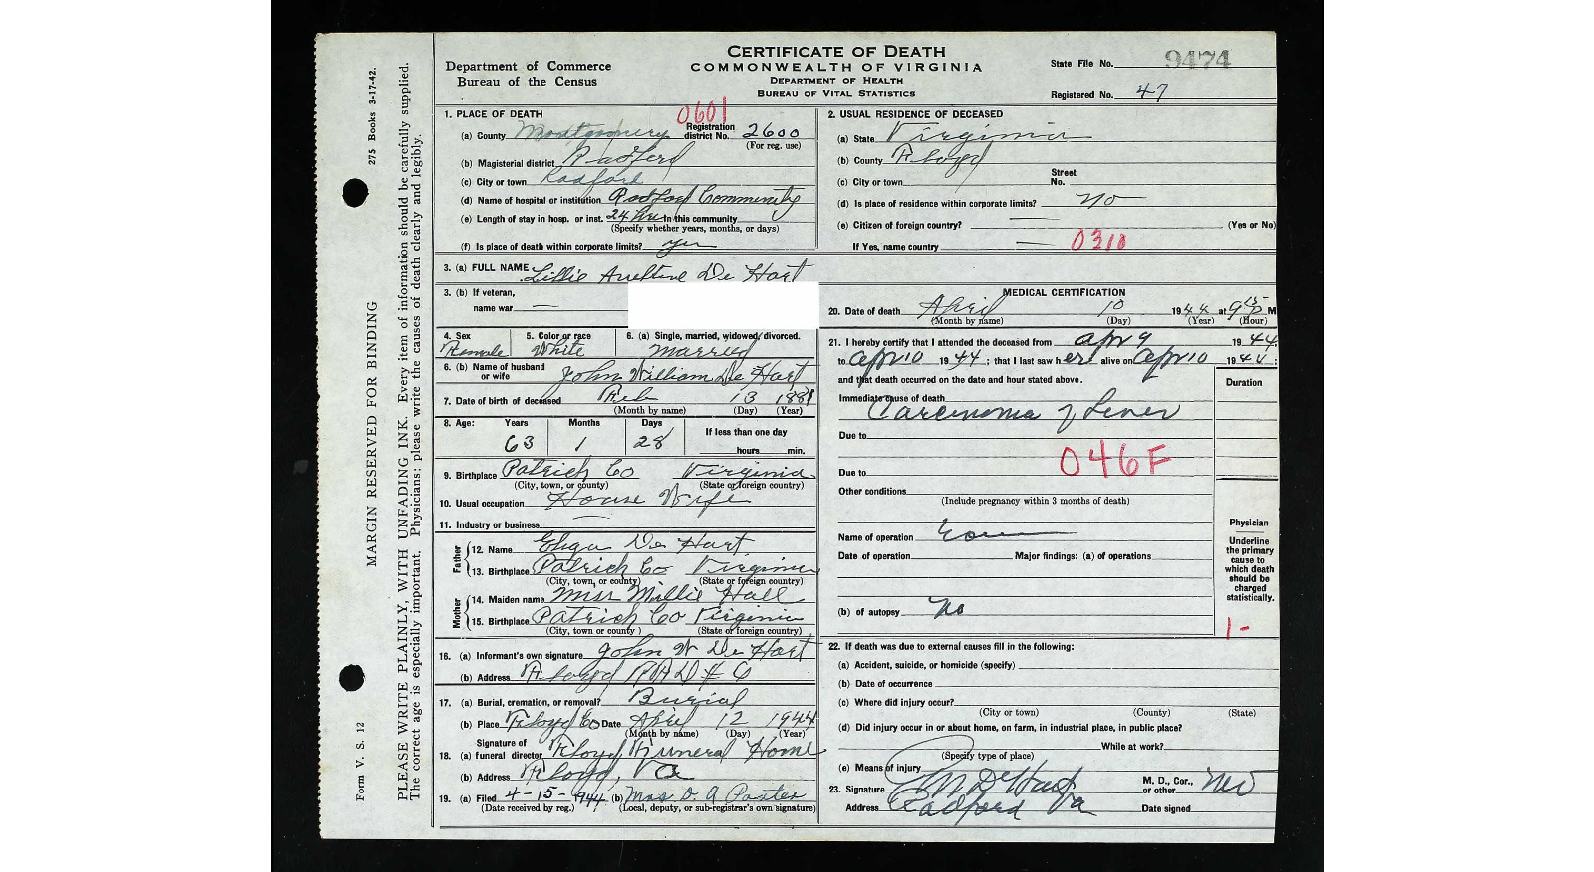 CERTIFICATE OF DEATH
COMMONWEALTH OF VIRGINIA
DEPARTMENT OF HEALTH
BUREAU OF VITAL STATISTICS
Department of Commerce
Bureau of the Census
State File No. 9474
Registered No. 47
275 Books 3-17-42.
MARGIN RESERVED FOR BINDING
Form V. S. 12
PLEASE WRITE PLAINLY, WITH UNFADING INK. Every item of information should be carefully supplied.
The correct age is especially important. Physicians; please write the causes of death clearly and legibly.
1. PLACE OF DEATH 0601
(a) County Montgomery Registration district No. 2600
(For reg. use)
(b) Magisterial district Radford
(c) City or town Radford
(d) Name of hospital or institution Radford Community
(e) Length of stay in hosp. or inst. 24 hrs In this community
(Specify whether years, months, or days)
(f) Is place of death within corporate limits? yes
2. USUAL RESIDENCE OF DECEASED
(a) State Virginia
(b) County Floyd
(c) City or town Street No.
(d) Is place of residence within corporate limits? no
(e) Citizen of foreign country? (Yes or No)
If Yes, name country 0310
3. (a) FULL NAME Lillie De Hart
3. (b) If veteran,
name war —
4. Sex Female
5. Color or race White
6. (a) Single, married, widowed/divorced. Married
6. (b) Name of husband or wife John William De Hart
7. Date of birth of deceased Feb 13 1881
(Month by name) (Day) (Year)
8. Age: Years 63 Months 1 Days 28 If less than one day
hours min.
9. Birthplace Patrick Co Virginia
(City, town, or county) (State or foreign country)
10. Usual occupation House Wife
11. Industry or business —
Father
12. Name De Hart
13. Birthplace Patrick Co Virginia
(City, town, or county) (State or foreign country)
Mother
14. Maiden name Miss Millie Hall
15. Birthplace Patrick Co Virginia
(City, town or county) (State or foreign country)
16. (a) Informant's own signature John W De Hart
(b) Address Floyd # 6
17. (a) Burial, cremation, or removal? Burial
(b) Place Floyd Co Date April 12 1944
(Month by name) (Day) (Year)
Signature of
18. (a) funeral director Floyd Funeral Home
(b) Address Floyd, Va
19. (a) Filed 4-15-1944 (b) Mrs. O. A.
(Date received by reg.) (Local, deputy, or sub-registrar's own signature)
MEDICAL CERTIFICATION
20. Date of death April 10 1944 at 9 15 P M
(Month by name) (Day) (Year) (Hour)
21. I hereby certify that I attended the deceased from Apr 9 1944
to Apr 10 1944; that I last saw her alive on Apr 10 1944;
and that death occurred on the date and hour stated above.
Duration
Immediate cause of death
Carcinoma of Liver
Due to
046F
Due to
Other conditions
(Include pregnancy within 3 months of death)
Name of operation
Date of operation Major findings: (a) of operations
(b) of autopsy No
Physician
Underline the primary cause to which death should be charged statistically.
1-
22. If death was due to external causes fill in the following:
(a) Accident, suicide, or homicide (specify)
(b) Date of occurrence
(c) Where did injury occur?
(City or town) (County) (State)
(d) Did injury occur in or about home, on farm, in industrial place, in public place?
While at work?
(Specify type of place)
(e) Means of injury
23. Signature M. D., Cor., or other MD
Address Radford Va Date signed